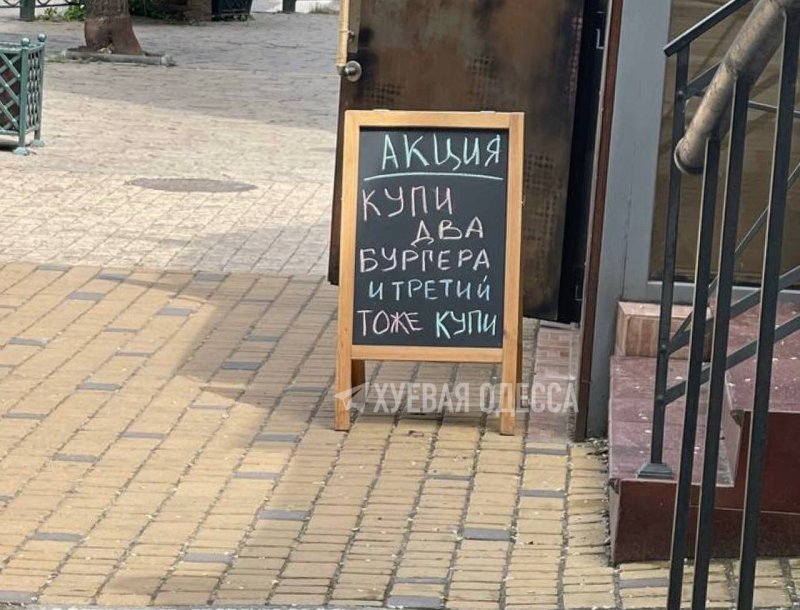 АКЦИЯ
КУПИ
ДВА
БУРГЕРА
И ТРЕТИЙ
ТОЖЕ КУПИ
ХУЕВАЯ ОДЕССА